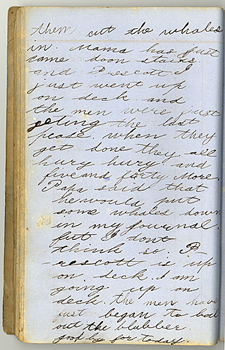 them cut the whales
in. Mama has just
came down stairs
and Prescott I
just went up
on deck and
the men were just
geting the last
peace, when they
get done they all
hury hury and
five and forty more.
Papa said that
he would put
some whales down
in my journal.
but I dont
think so. P-
rescott is up
on deck. I am
going up on
deck. the men have
just began to boil
out the blubber.
good by for today.